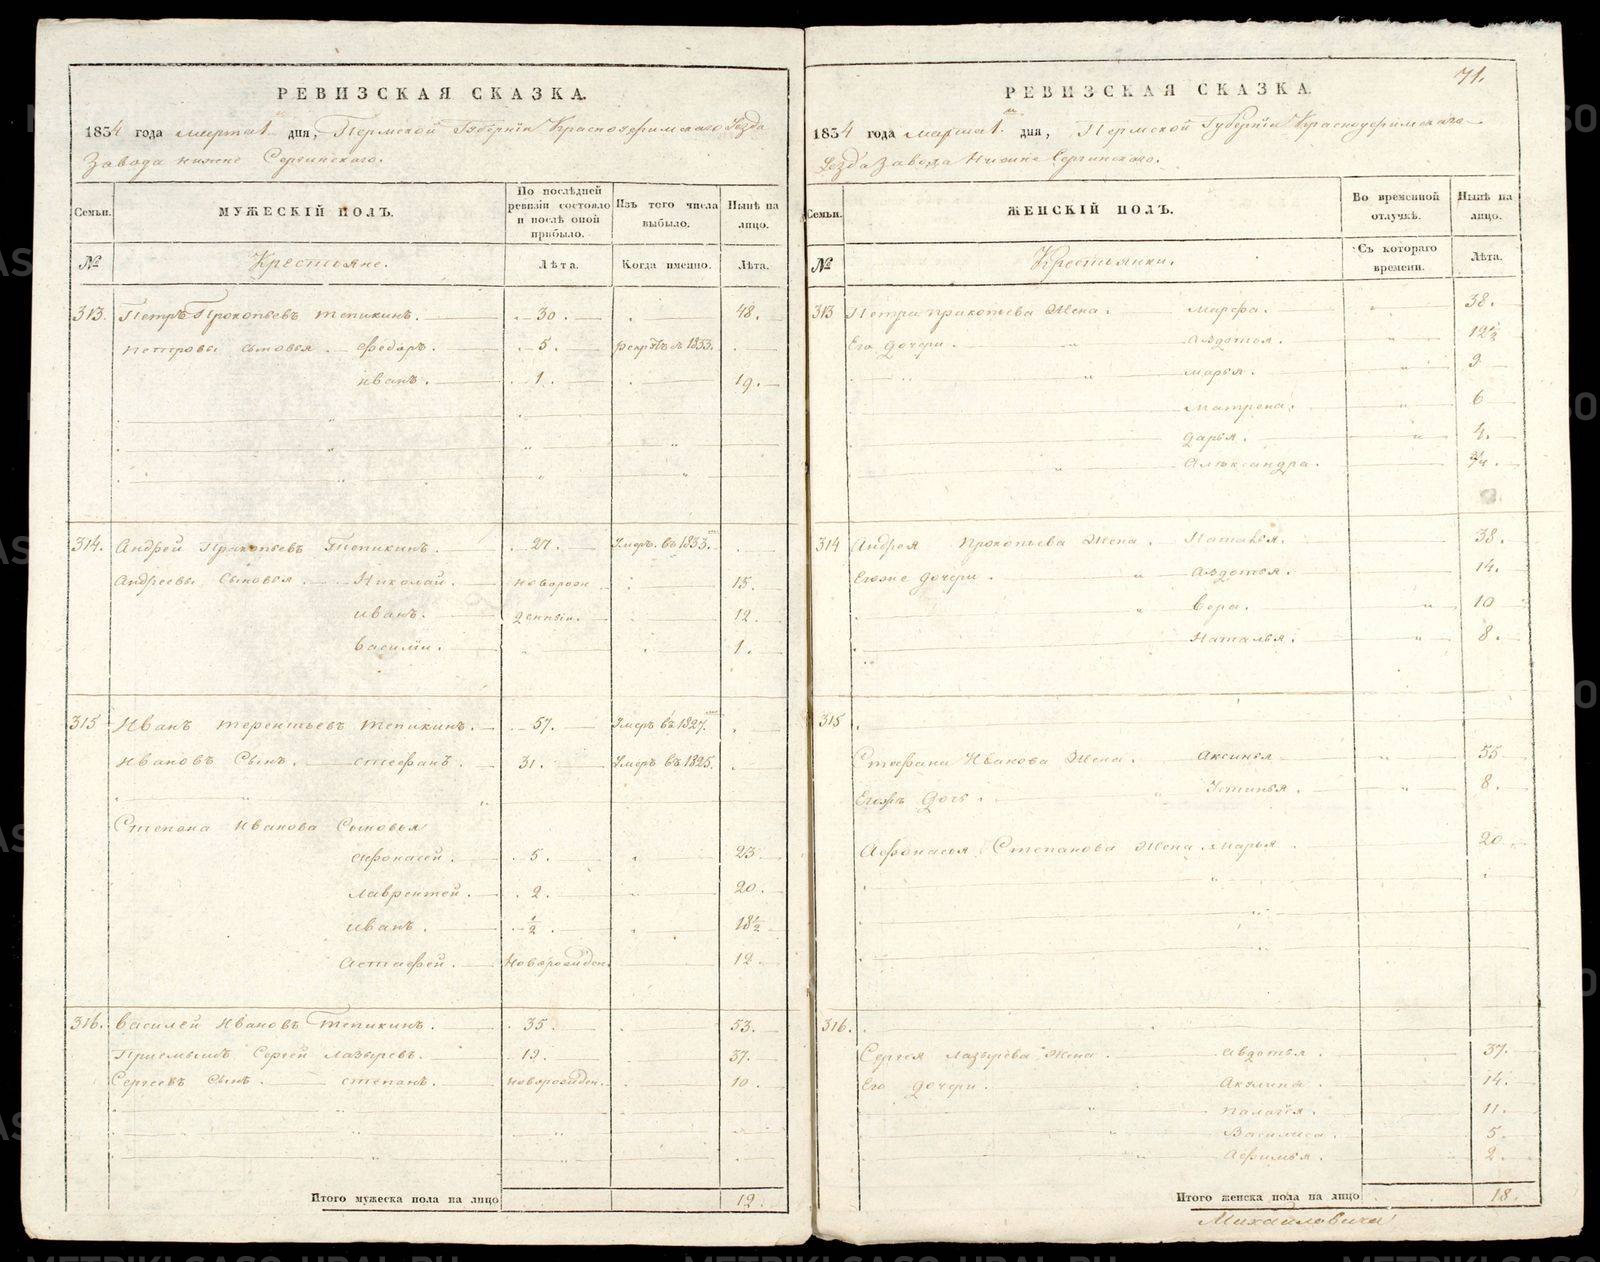 РЕВИЗСКАЯ СКАЗКА.
1834 года марта 1 дня, Пермской Губерніи Красноуфимскаго Уезда
Завода Нижне Сергинскаго.
Семьи.
МУЖЕСКІЙ ПОЛЪ.
По послѣдней ревизіи состояло и послѣ оной прибыло.
Изъ того числа выбыло.
Нынѣ на лицо.
№
Крестьяне.
Лѣта.
Когда именно.
Лѣта.
313. Петръ Прокопьевъ Тепикинъ. 30. 48.
Петровы сыновья Федоръ. 5. 1833.
иванъ. 1. 19.
314. Андрей Прокопьевъ Тепикинъ. 27. Умеръ въ 1833.
Андреевы Сыновья Николай. новорож 15.
иванъ. денныи. 12.
василіи. 1.
315 Иванъ терентьевъ тепикинъ. 57. Умеръ въ 1827.
Ивановъ Сынъ. стефанъ. 31. Умеръ въ 1825.
Степана Иванова Сыновья
афонасей. 5. 23
лаврентей. 2. 20.
иванъ. 1/2. 18 1/2
Астафей. Новорожден. 12.
316. Василей Ивановъ Тепикинъ. 35. 53.
Приемышъ Сергей лазыревъ. 19. 37.
Сергеевъ Сынъ. степанъ. новорожден. 10.
Итого мужеска пола на лицо 12.
71.
РЕВИЗСКАЯ СКАЗКА.
1834 года марта 1 дня, Пермской Губерніи Красноуфимскаго
Уезда Завода Нижне Сергинскаго.
Семьи.
ЖЕНСКІЙ ПОЛЪ.
Во временной отлучкѣ.
Нынѣ на лицо.
№
Крестьянки.
Съ котораго времени.
Лѣта.
313 Петра прокопьева Жена. марфа. 38.
Его дочери. авдотья. 12 1/2
марья. 9
Матрена. 6
дарья. 4.
Александра.
314 Андрея Прокопьева Жена. Наталья. 38.
Егоже дочери. авдотья. 14.
Вера. 10
Наталья. 8.
315
Стефана Иванова Жена. Аксинья 55
Егожъ Дочь. Устинья. 8.
Афонасья Степанова Жена. марья. 20.
316.
Сергея лазырева Жена. авдотья. 37.
Его дочери. Акулина. 14.
палагея. 11.
Василиса. 5.
Афимья. 2.
Итого женска пола на лицо 18.
Михайловича